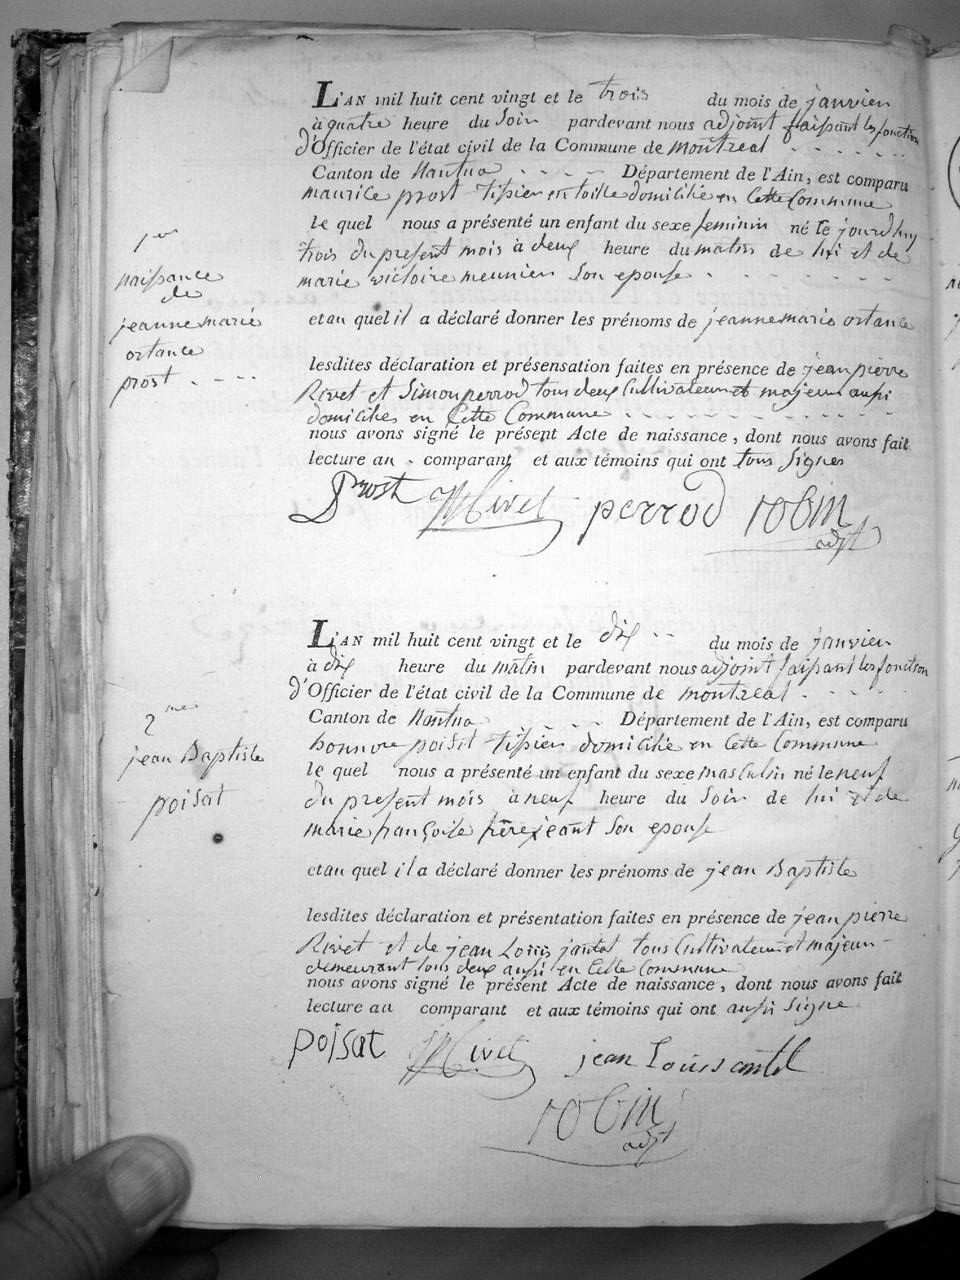 L'AN mil huit cent vingt et le trois du mois de janvier
à quatre heure du Soir pardevant nous adjoint faisant les fonction
d'Officier de l'état civil de la Commune de montreal
Canton de Nantua Département de l'Ain, est comparu
maurice prost tissier en toille domicilié en Cette Commune
le quel nous a présenté un enfant du sexe feminin né le jourdhuy
trois du present mois à deux heure du matin de lui et de
marie victoire meunier Son epouse
et au quel il a déclaré donner les prénoms de jeanne marie ortance
lesdites déclaration et présensation faites en présence de jean pierre
Rivet et Simon perrod tous deux Cultivateur et majeur aussi
domicilies en Cette Commune
nous avons signé le présent Acte de naissance, dont nous avons fait
lecture au comparant et aux témoins qui ont tous Signes
1er
naissance
de
jeanne marie
ortance
prost
Prost Rivet perrod robin
adjt
L'AN mil huit cent vingt et le dix du mois de janvier
à dix heure du matin pardevant nous adjoint faisant les fonction
d'Officier de l'état civil de la Commune de montreal
Canton de Nantua Département de l'Ain, est comparu
honnore poisat tissier domicilié en Cette Commune
le quel nous a présenté un enfant du sexe masculin né le neuf
du present mois à neuf heure du Soir de lui et de
marie françoise Son epouse
et au quel il a déclaré donner les prénoms de jean Baptiste
lesdites déclaration et présentation faites en présence de jean pierre
Rivet et de jean Louis jantet tous Cultivateur et majeur
demeurant tous deux aussi en Cette Commune
nous avons signé le présent Acte de naissance, dont nous avons fait
lecture au comparant et aux témoins qui ont aussi Signe
2me
jean Baptiste
poisat
poisat Rivet jean Louis
robin
adjt